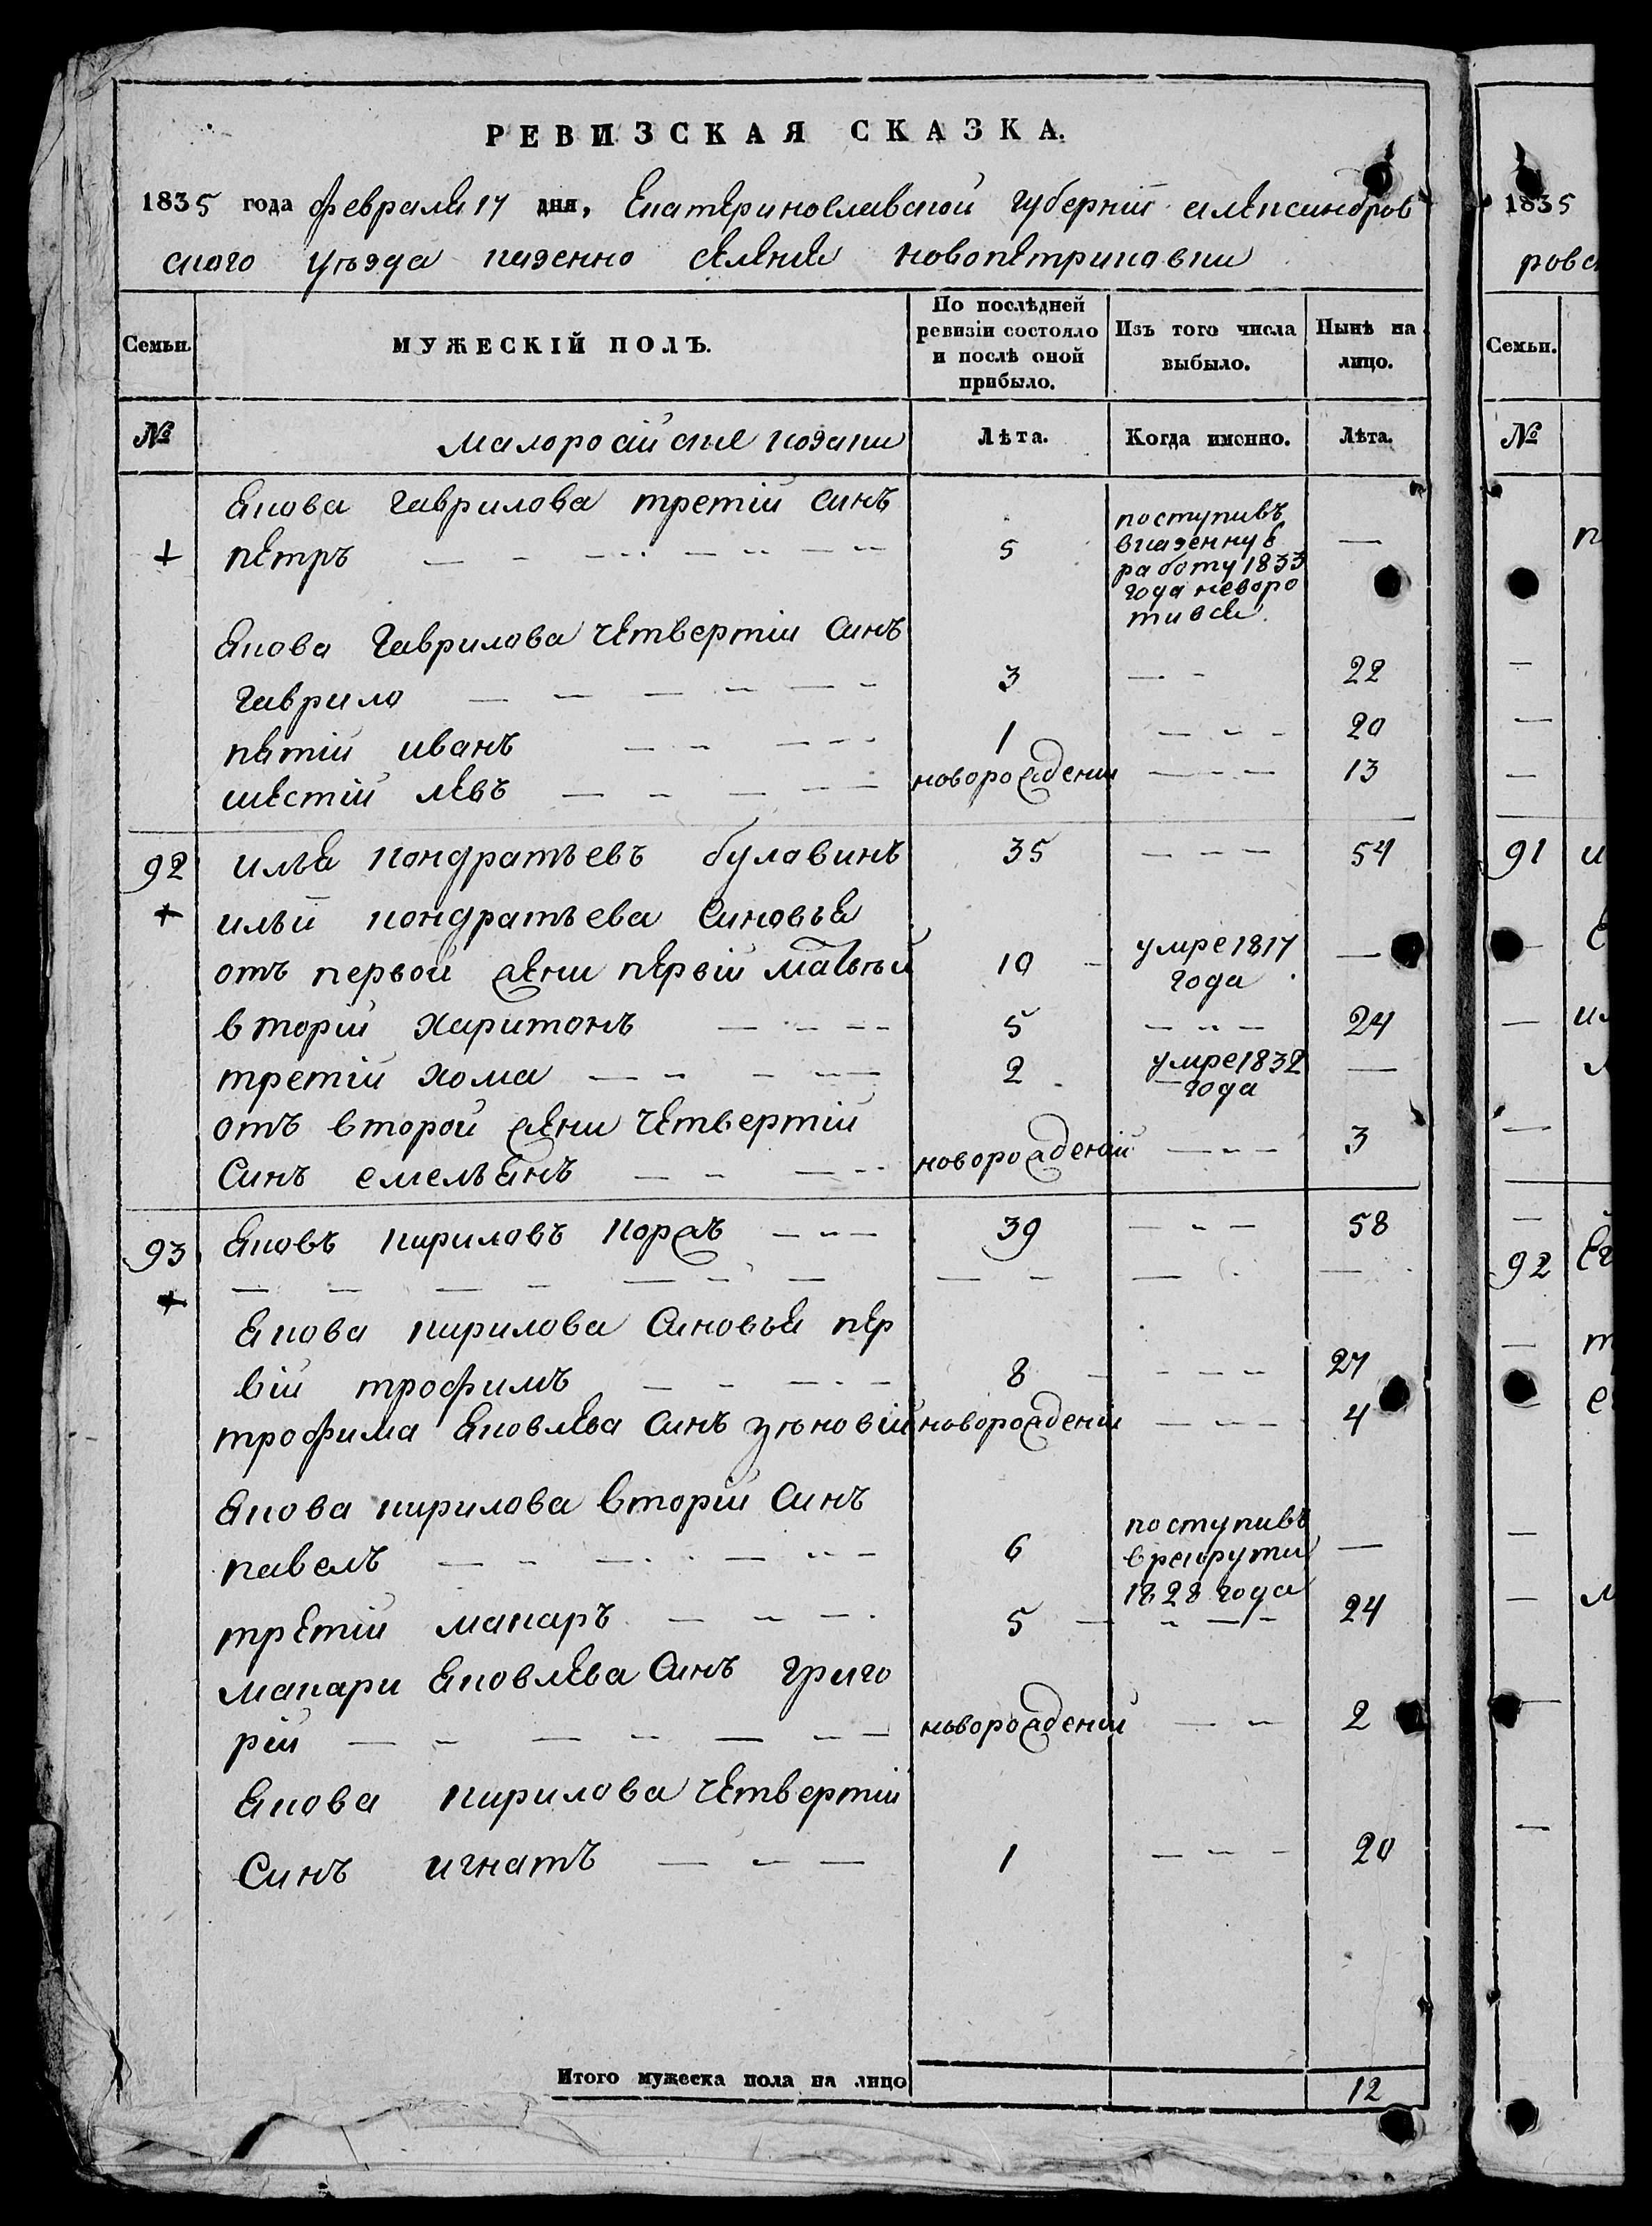 РЕВИЗСКАЯ СКАЗКА.
1835 года февраля 17 дня, Екатеринославской губернїи александров
ского уѣзда казенно селение новопетрикавки
Семьи.
МУЖЕСКІЙ ПОЛЪ.
По послѣдней
ревизіи состояло
и послѣ оной
прибыло.
Изъ того числа
выбыло.
Нынѣ на
лицо.
№
малоросийские козаки
Лѣта.
Когда именно.
Лѣта.
Якова гаврилова третій синъ
+ петръ 5 —
поступивъ
вказенную
работу 1833
года неворо
тився
Якова гаврилова четвертій синъ
гаврило 3 — 22
пятій иванъ 1 — 20
шестій левъ новорождени — 13
92 илья кондратьевъ булавинъ 35 — 54
+ ильи кондратьева Синовья
отъ первой жени первій матвѣй 10 умре 1817 года —
вторій харитонъ 5 — 24
третій хома 2 умре 1832 года —
отъ второй жени четвертій
Синъ емельянъ новорожденій — 3
93 Яковъ кириловъ коржъ 39 — 58
+
Якова кирилова Синовья пер
вій трофимъ 8 — 27
трофима Яковлева синъ зѣновій новорожденій — 4
Якова кирилова вторій синъ
павелъ 6 —
поступивъ
врекрути
1828 года
третій макаръ 5 — 24
макари Яковлева Синъ григо
рій новорожденій — 2
Якова кирилова четвертій
Синъ игнатъ 1 — 20
Итого мужеска пола на лицо 12
1835
ровс
Семьи.
№
91
92